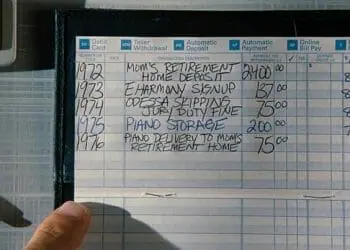 Debit Card
Teller Withdrawal
AD Automatic Deposit
Automatic Payment
Online Bill Pay
1972 MOM'S RETIREMENT 2400 00
HOME DEPOSIT
1973 EHARMONY SIGNUP 37 00
1974 ODESSA SKIPPING 75 00
JURY DUTY FINE
1975 PIANO STORAGE 200 00
1976 PIANO DELIVERY TO MOM'S 75 00
RETIREMENT HOME